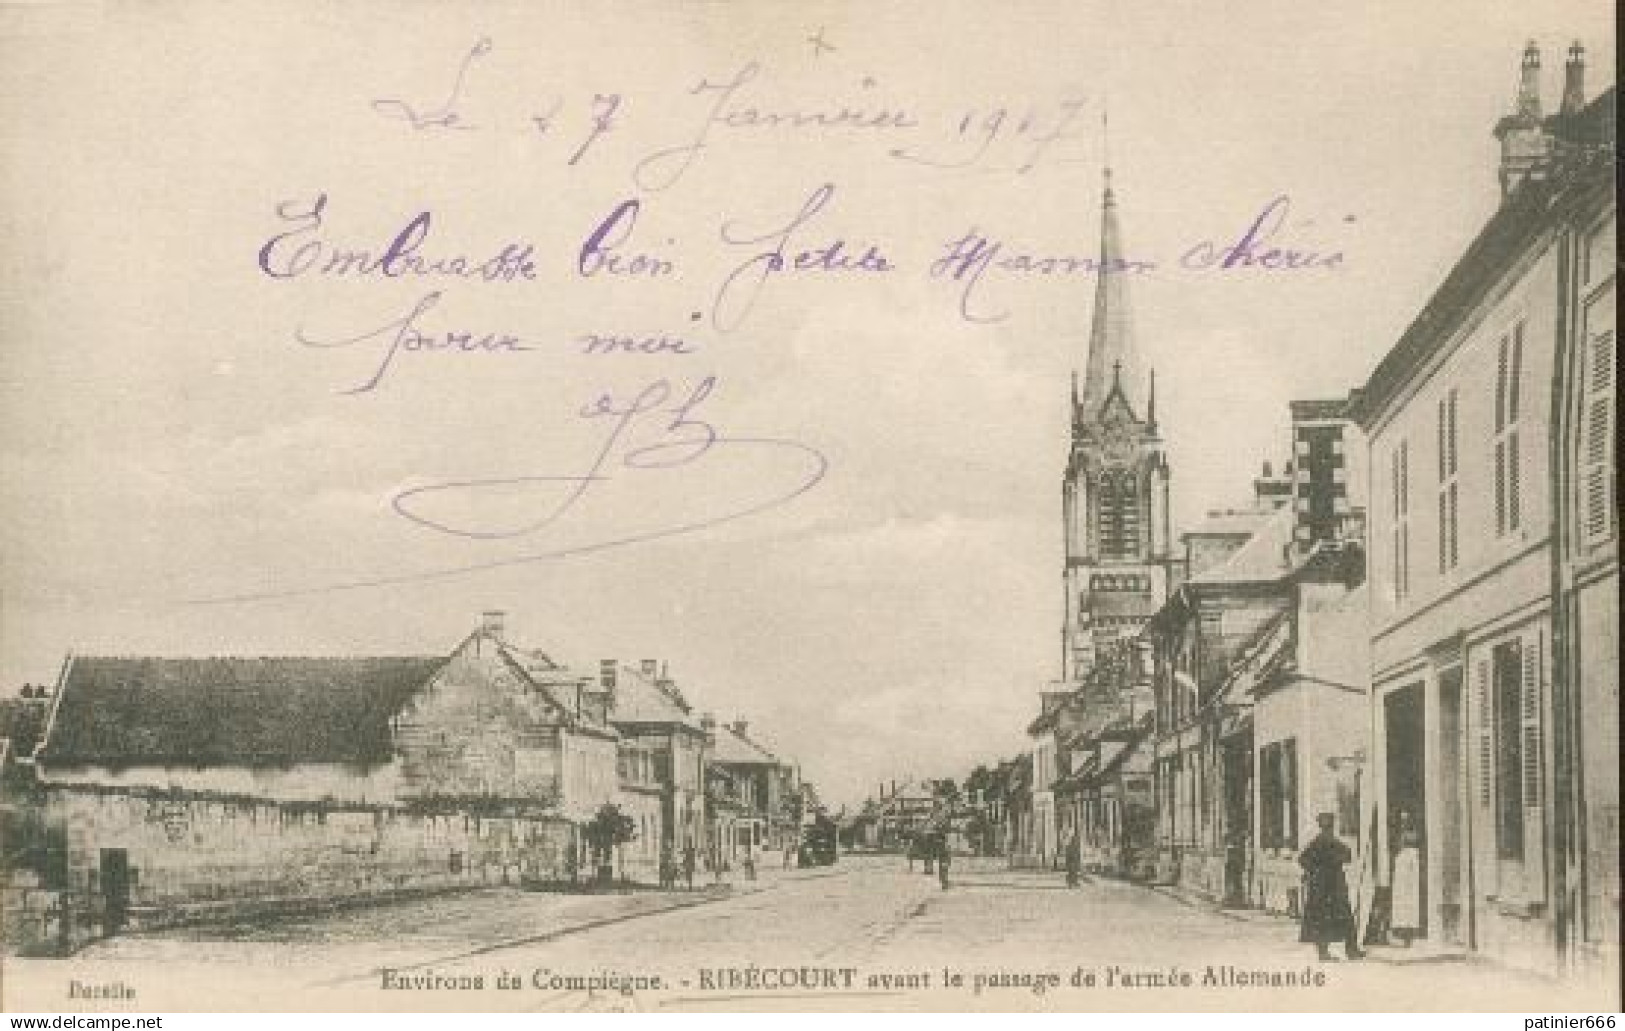 Le 27 Janvier 1917
Embrasse bien petite Maman chérie
pour moi
Environs de Compiègne. - RIBÉCOURT avant le passage de l'armée Allemande
www.delcampe.net
patinier666